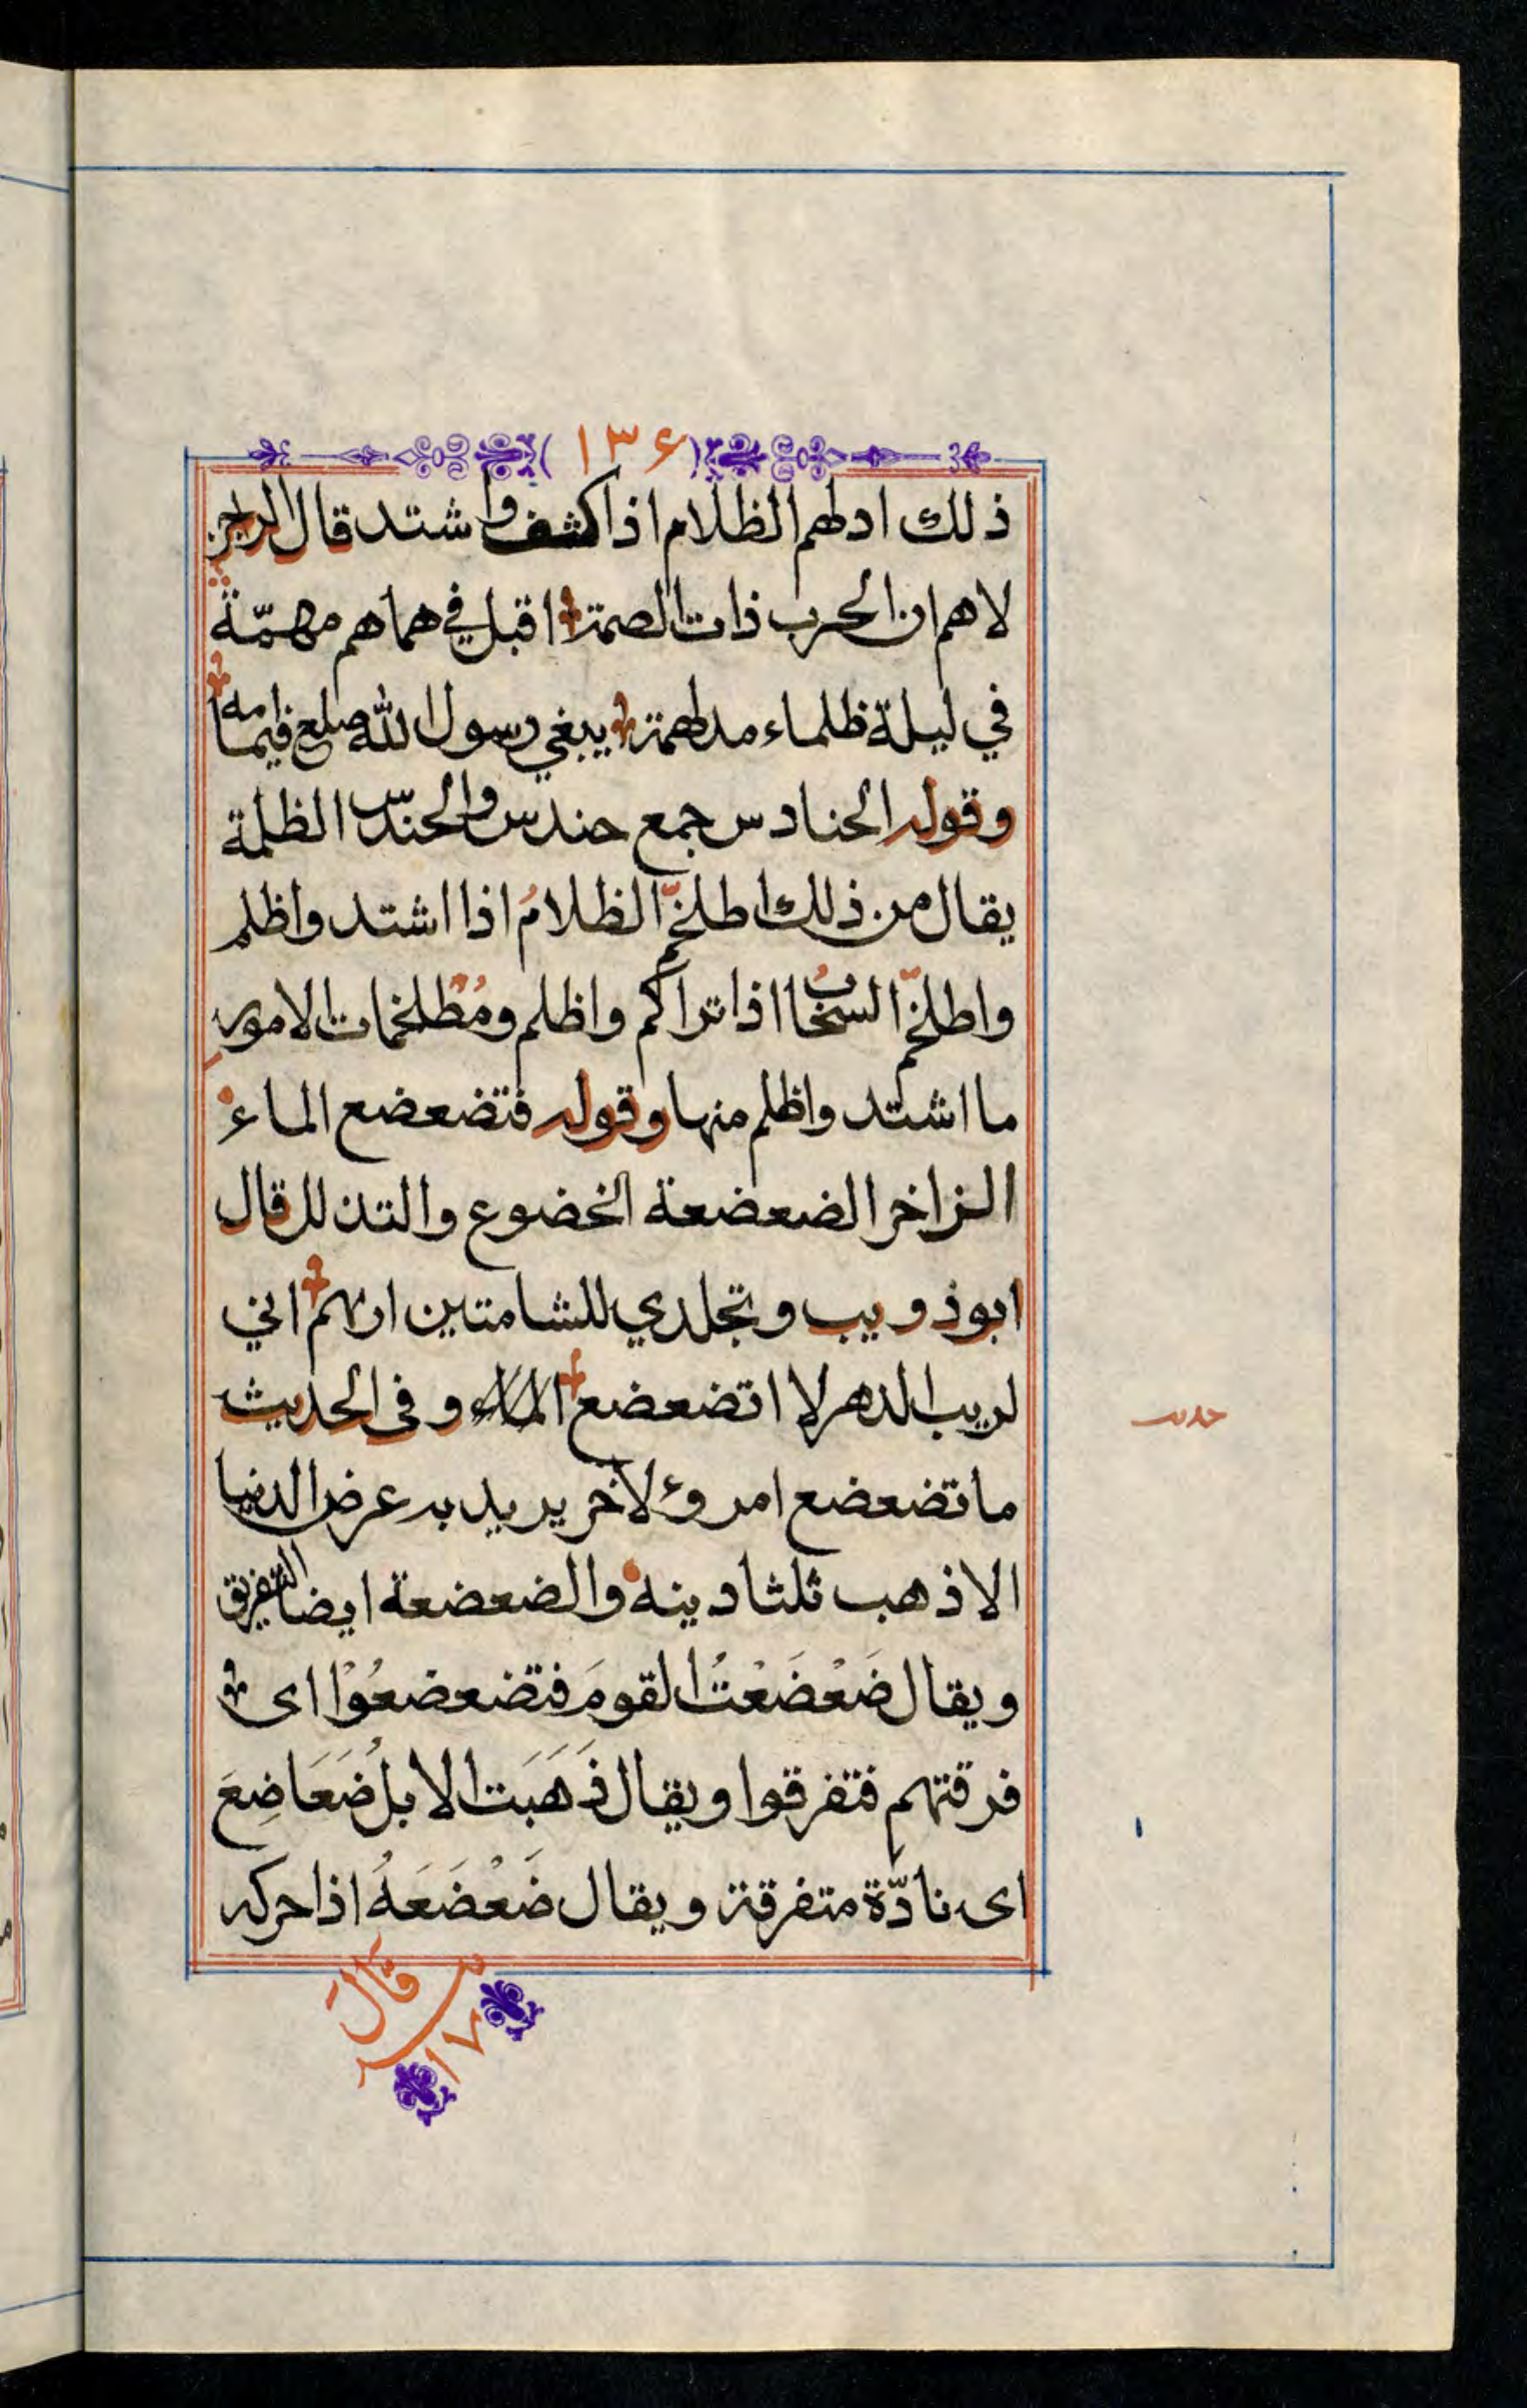 ١٣٦
ذلك ادلهم الظلام اذا كشف واشتد قال الراجز
لاهم ان الحرب ذات الصمة اقبل في هماهم مهمّة
في ليلة ظلماء مدلهمة يبغي رسول الله صلعم فيما مه
وقوله الحنادس جمع حندس والحندس الظلمة
يقال من ذلك اطلخمّ الظلامُ اذا اشتد واظلم
واطلخمّ السحابُ اذا تراكم واظلم ومُطْلخمات الامور
ما اشتد واظلم منها وقوله فتضعضع الماء
الزاخر الضعضعة الخضوع والتذلل قال
ابوذويب وتجلدي للشامتين اريهم اني
لريب الدهر لا اتضعضع وفى الحديث
ما تضعضع امرؤ لاخر يريد به عرض الدنيا
الا ذهب ثلثا دينه والضعضعة ايضا التفريق
ويقال ضَعْضَعْتُ القومَ فتضعضعُوْا اى
فرقتهم فتفرقوا ويقال ذَهَبَت الابلُ ضَعَاضِعَ
اى نادّة متفرقة ويقال ضَعْضَعَهُ اذا حركه
حديث
قال
١٧